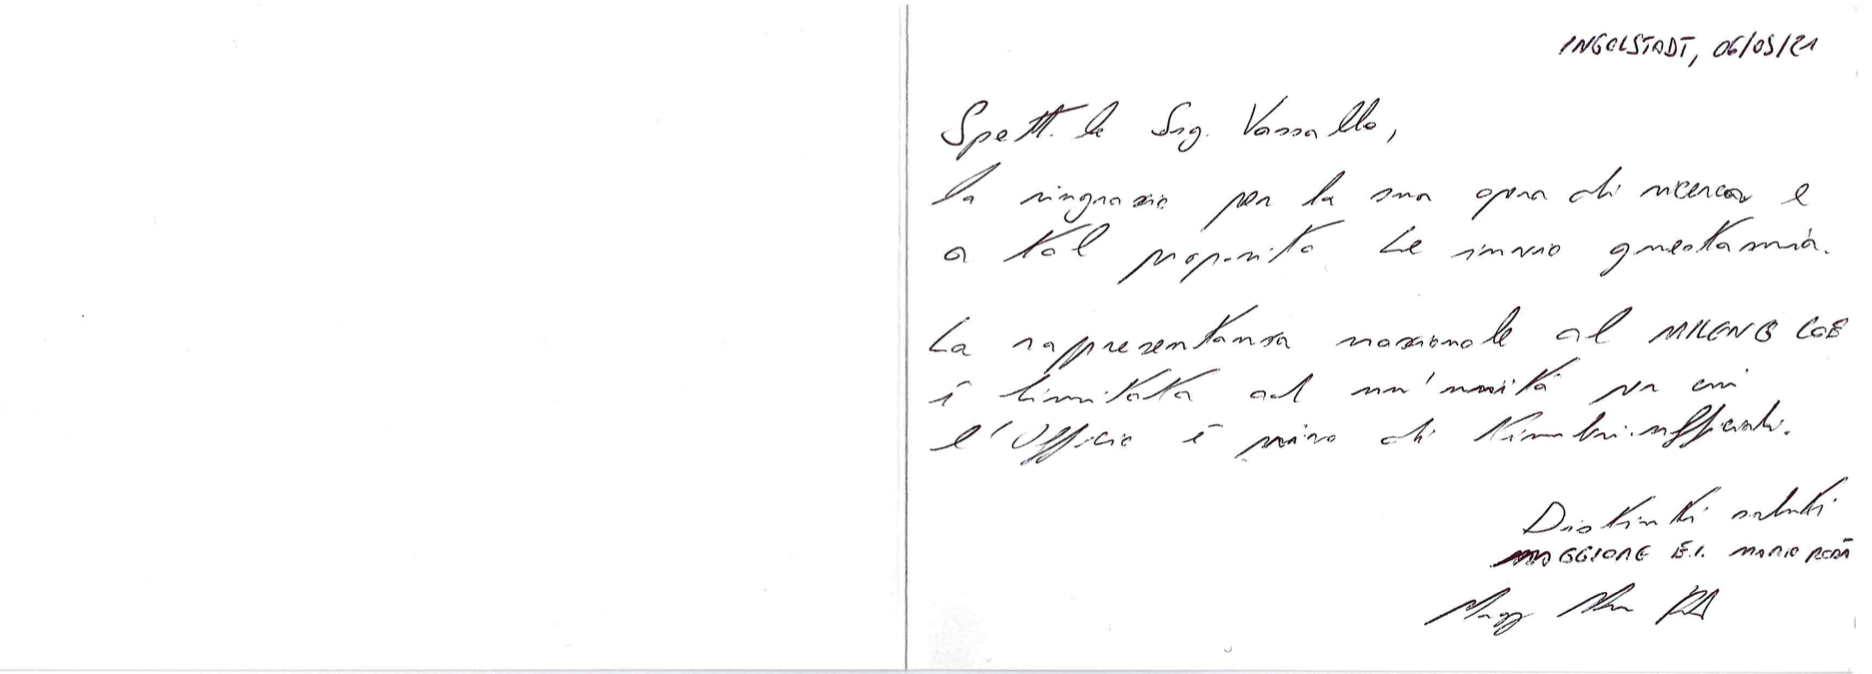 INGOLSTADT, 06/05/21
Spett.le Sig. Vassallo,
la ringrazio per la sua opera di ricerca e
a tal proposito Le invio questa mia.
La rappresentanza nazionale al MILENG COE
è limitata ad un'unità per cui
l'Ufficio è privo di timbri ufficiali.
Distinti saluti
MAGGIORE E.I. MARIO
Magg